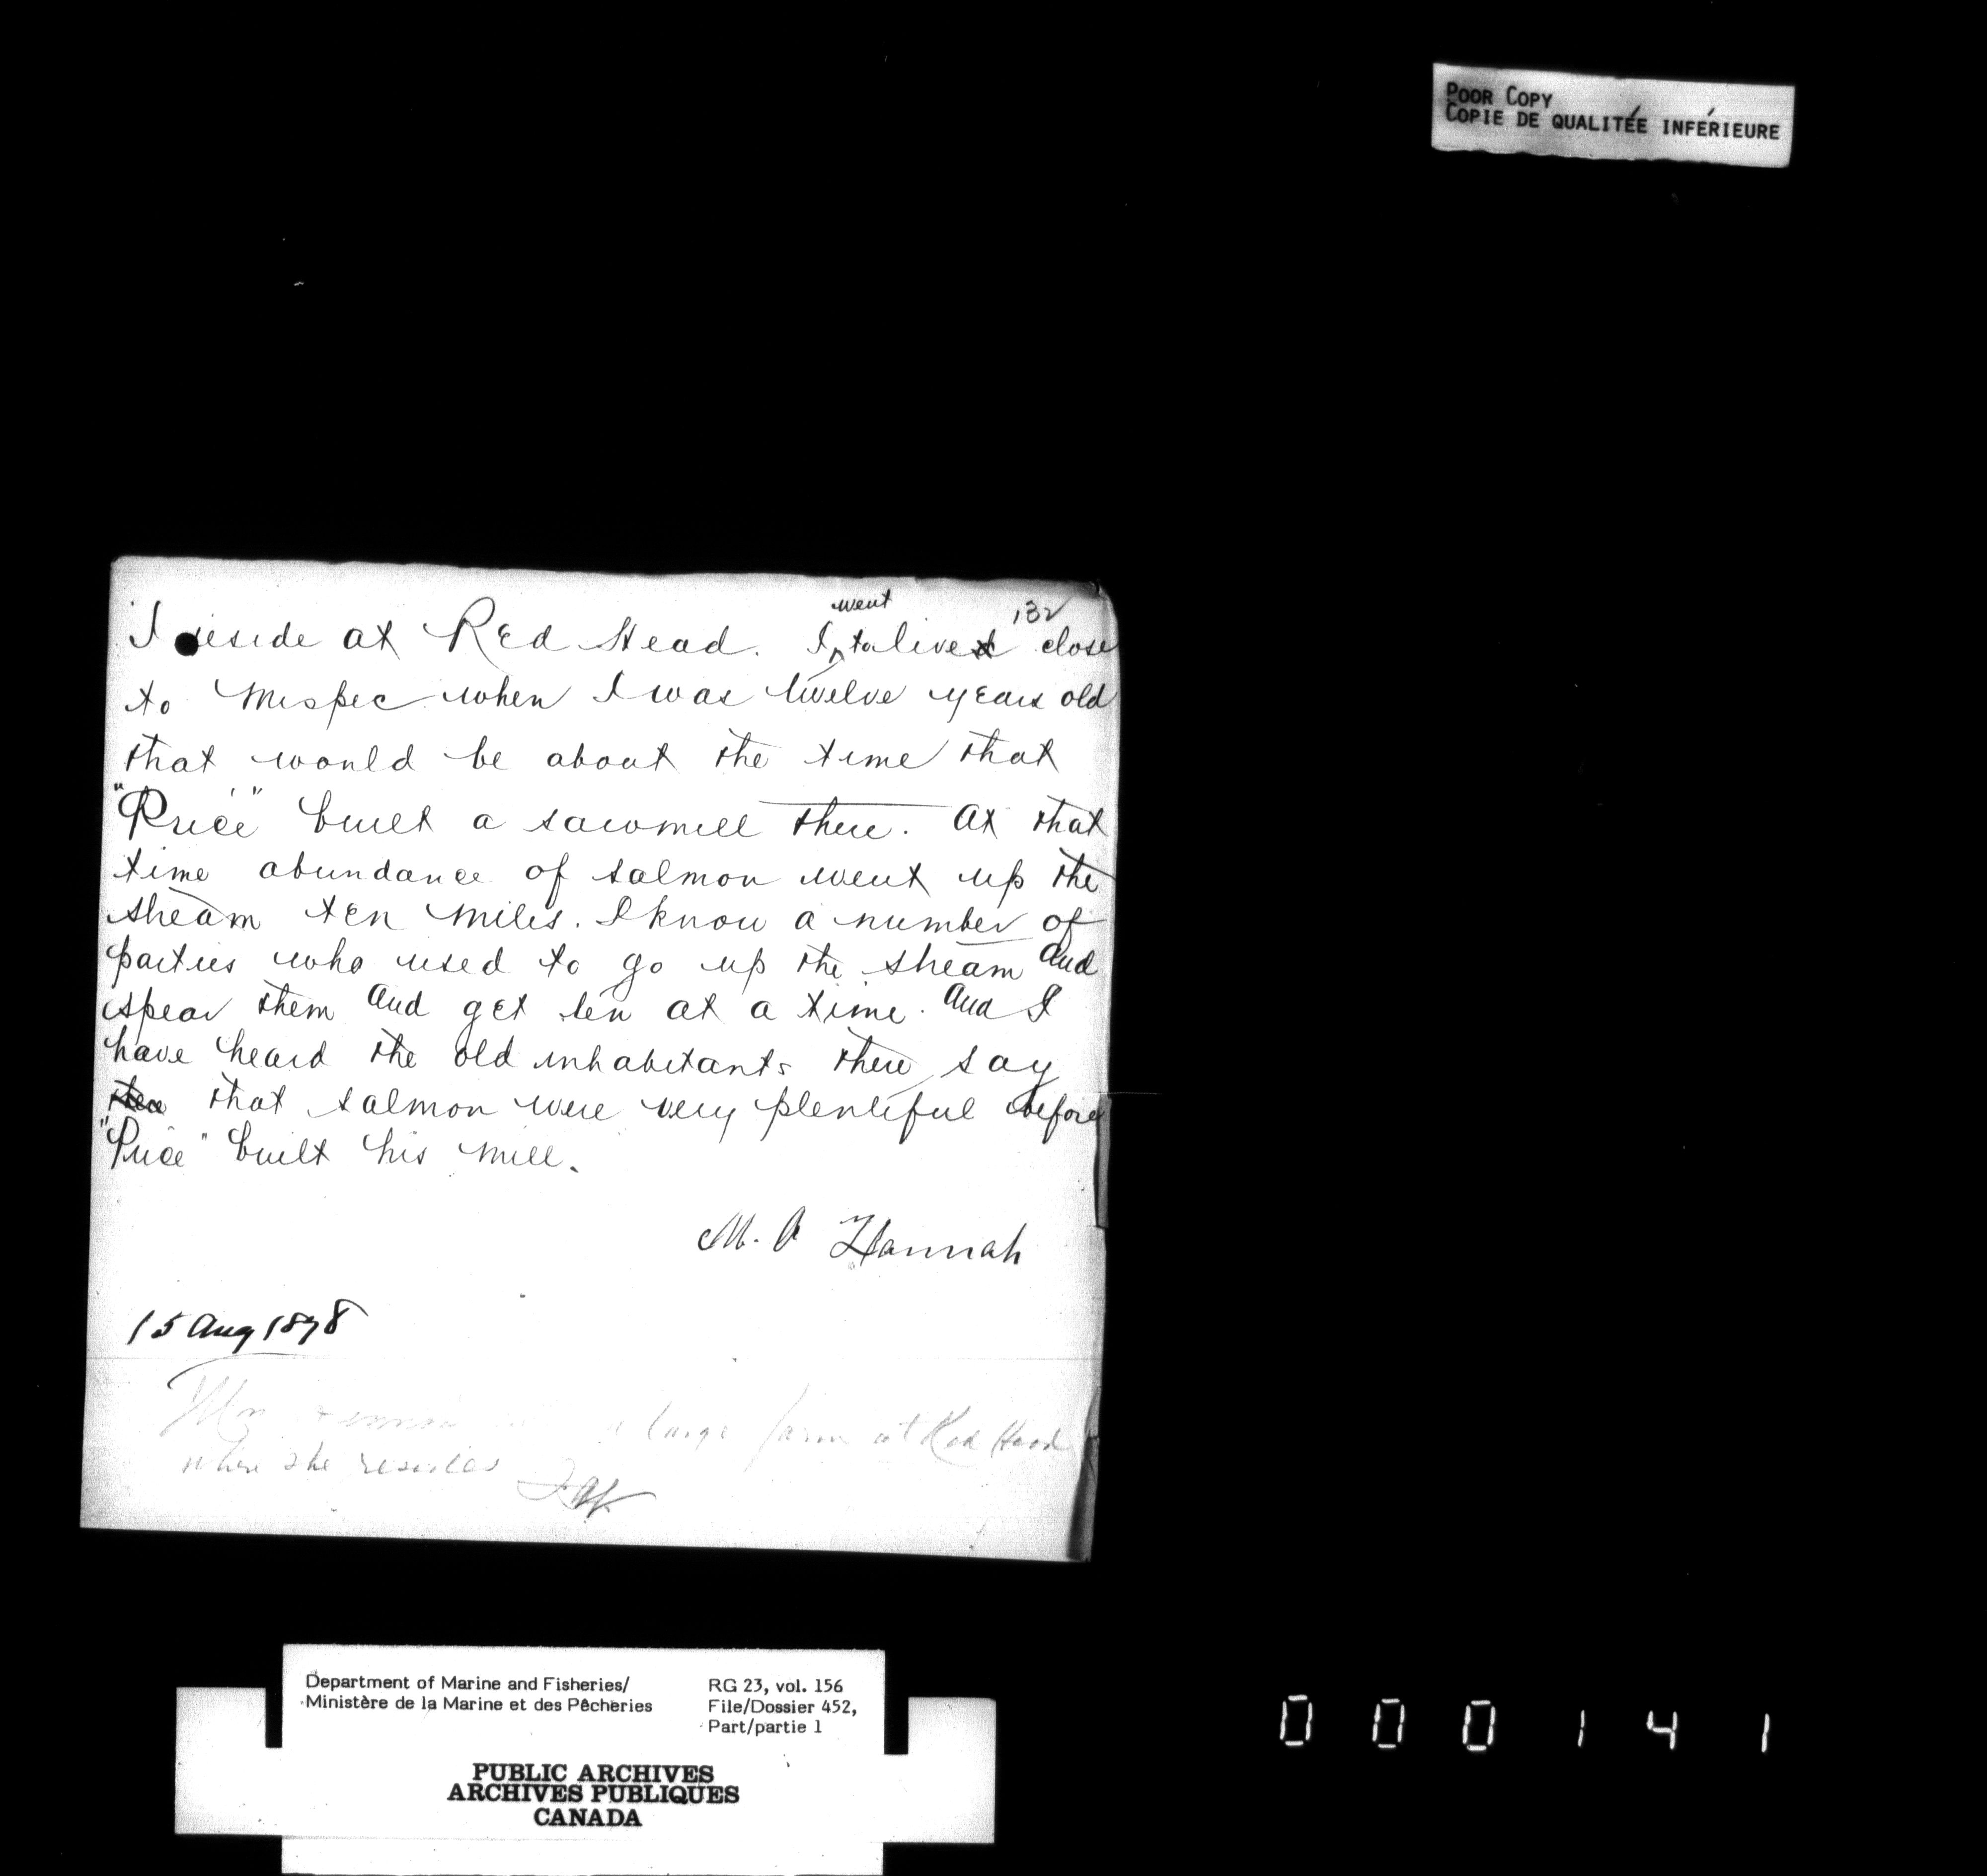 POOR COPY
COPIE DE QUALITÉE INFÉRIEURE
132
went
I reside at Red Head. I to live close
to Mispec when I was twelve years old
that would be about the time that
"Price" built a sawmill there. At that
time abundance of salmon went up the
stream ten miles. I know a number of
parties who used to go up the stream and
spear them and get ten at a time. And I
have heard the old inhabitants there say
that salmon were very plentiful before
"Price" built his mill.
M. A Hannah
15 Aug 1898
a large farm at Red Head
where she resides
Department of Marine and Fisheries/
Ministère de la Marine et des Pêcheries
RG 23, vol. 156
File/Dossier 452,
Part/partie 1
PUBLIC ARCHIVES
ARCHIVES PUBLIQUES
CANADA
000141